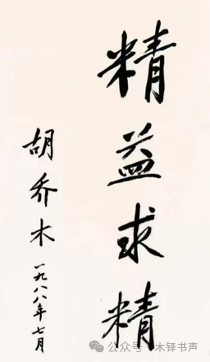 精益求精
胡乔木
一九八八年七月
公众号·木铎书声